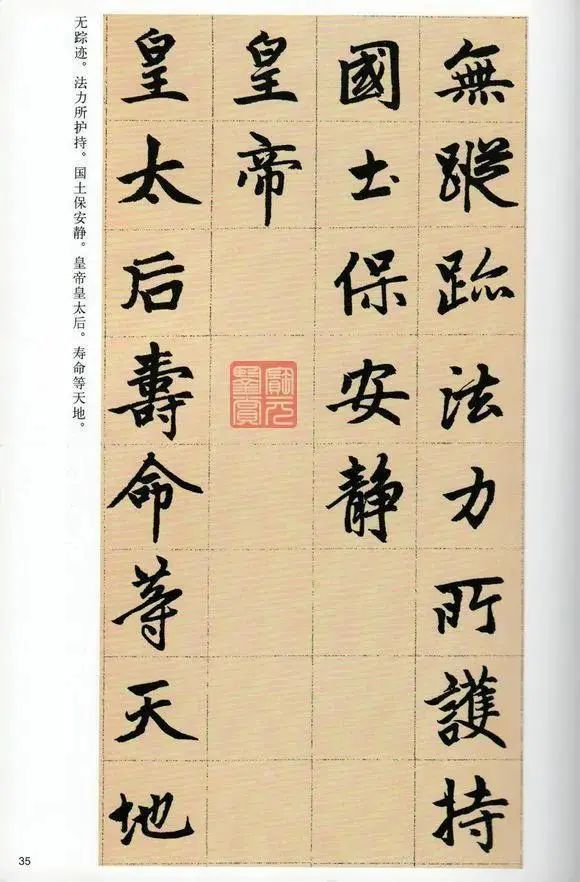 無蹤跡法力所護持
國土保安静
皇帝
皇太后壽命等天地
无踪迹。法力所护持。国土保安静。皇帝皇太后。寿命等天地。
35